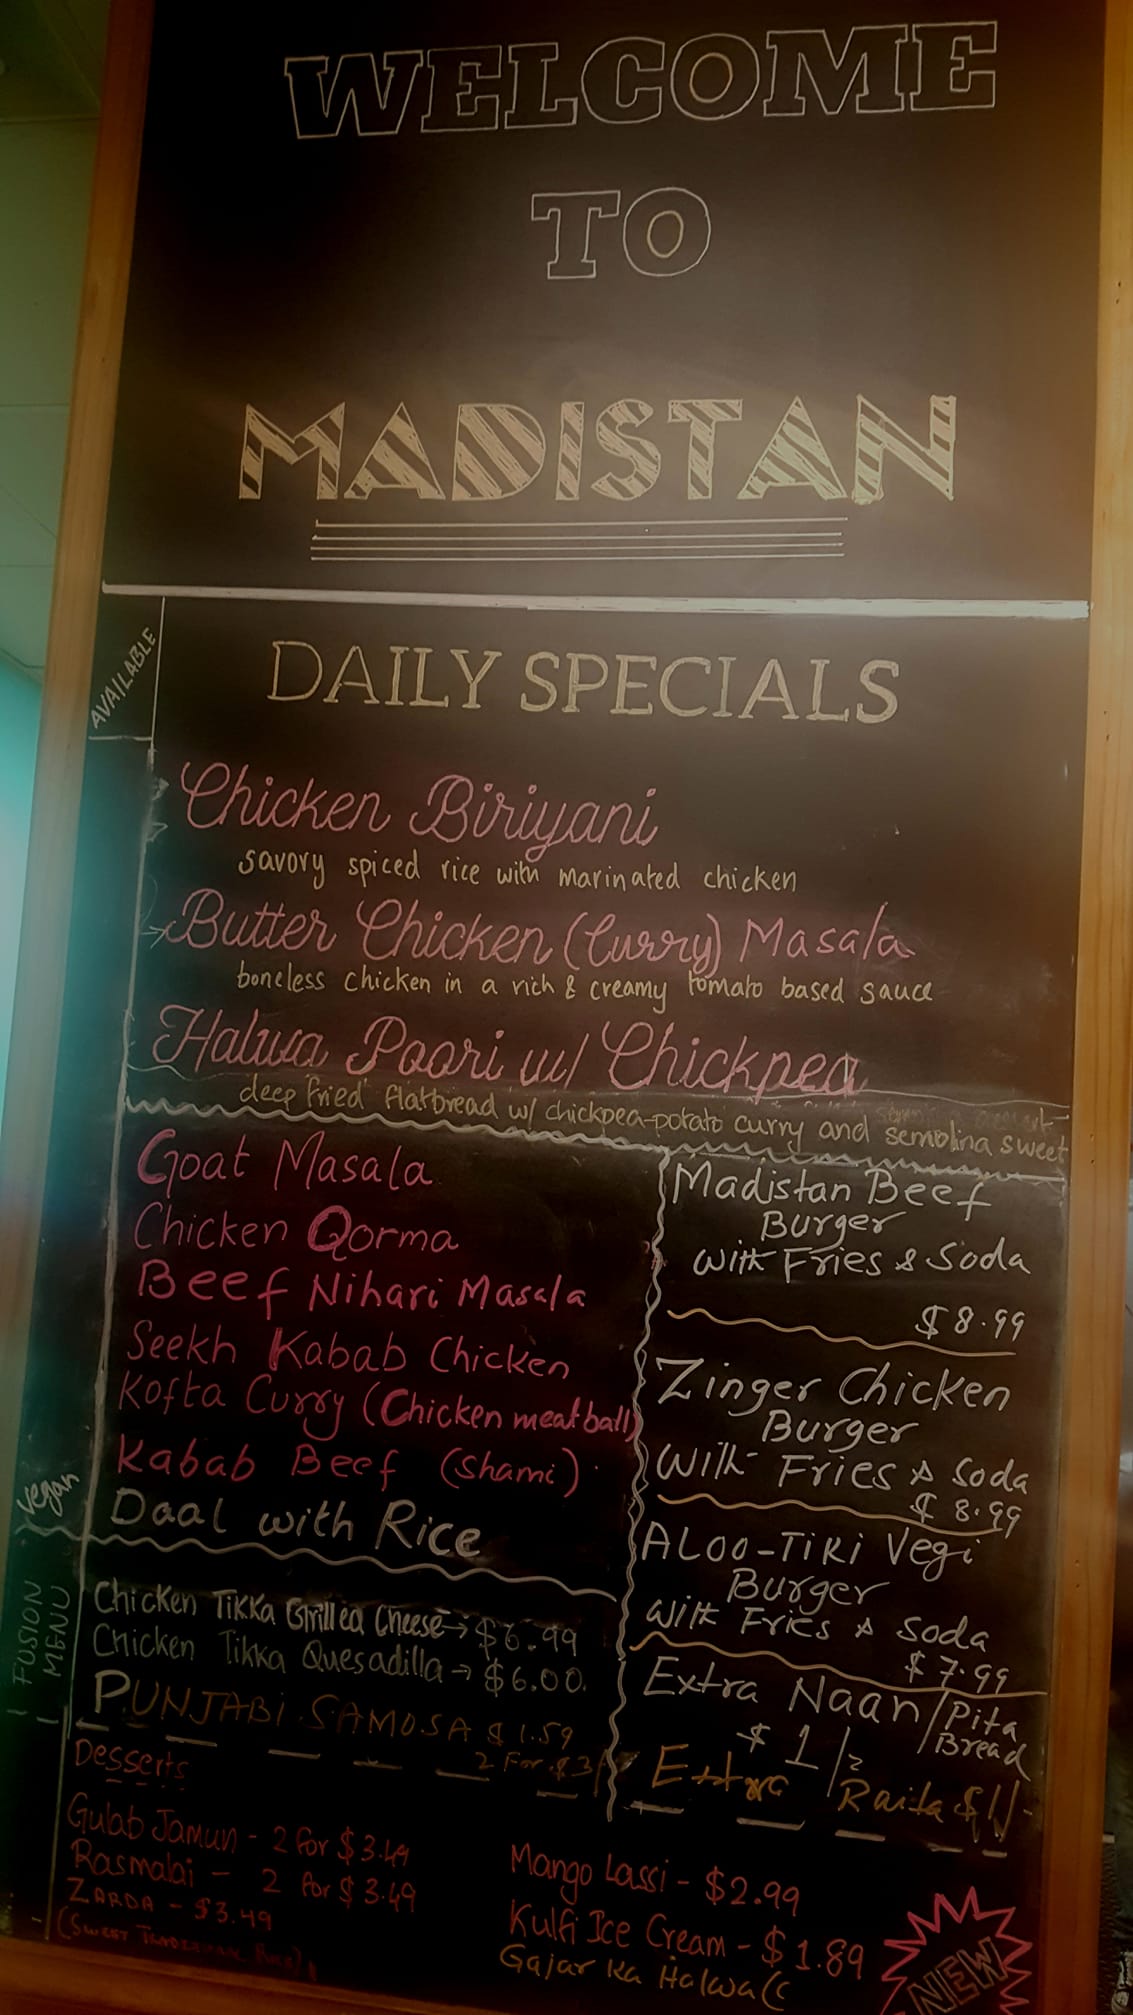 WELCOME
TO
MADISTAN
AVAILABLE
DAILY SPECIALS
Chicken Biriyani
savory spiced rice with marinated chicken
Butter Chicken (Curry) Masala
boneless chicken in a rich & creamy tomato based sauce
Halwa Poori w/ Chickpea
deep fried flatbread w/ chickpea-potato curry and semolina sweet
Goat Masala
Chicken Qorma
Beef Nihari Masala
Seekh Kabab Chicken
Kofta Curry (Chicken meatball)
Kabab Beef (Shami)
Vegan
Daal with Rice
FUSION
MENU
Chicken Tikka Grilled Cheese → $6.99
Chicken Tikka Quesadilla → $6.00
PUNJABI SAMOSA $1.59
2 For $3/
Madistan Beef
Burger
with Fries & Soda
$8.99
Zinger Chicken
Burger
with Fries & Soda
$8.99
ALOO-TIKI Vegi
Burger
with Fries & Soda
$7.99
Extra Naan/Pita
Bread
$1/2
Extra Raita $1/-
Desserts
Gulab Jamun - 2 for $3.49
Rasmalai - 2 for $3.49
ZARDA - $3.49
(SWEET TRADITIONAL
Mango Lassi - $2.99
Kulfi Ice Cream - $1.89
Gajar Ka Halwa
NEW